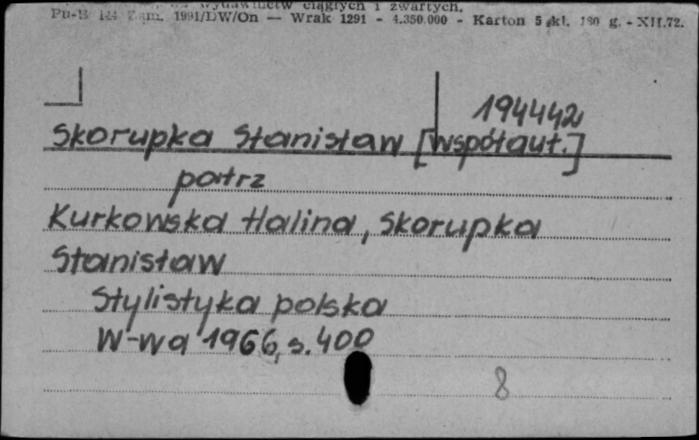 wydawnictw ciągłych i zwartych.
Pu-B 144 Zam. 1991/DW/On — Wrak 1291 - 4.350.000 - Karton 5 kl. 180 g. - XII.72.
194442
Skorupka Stanisław [współaut.]
patrz
Kurkowska Halina, Skorupka
Stanisław
Stylistyka polska
W-wa 1966, s. 400
8